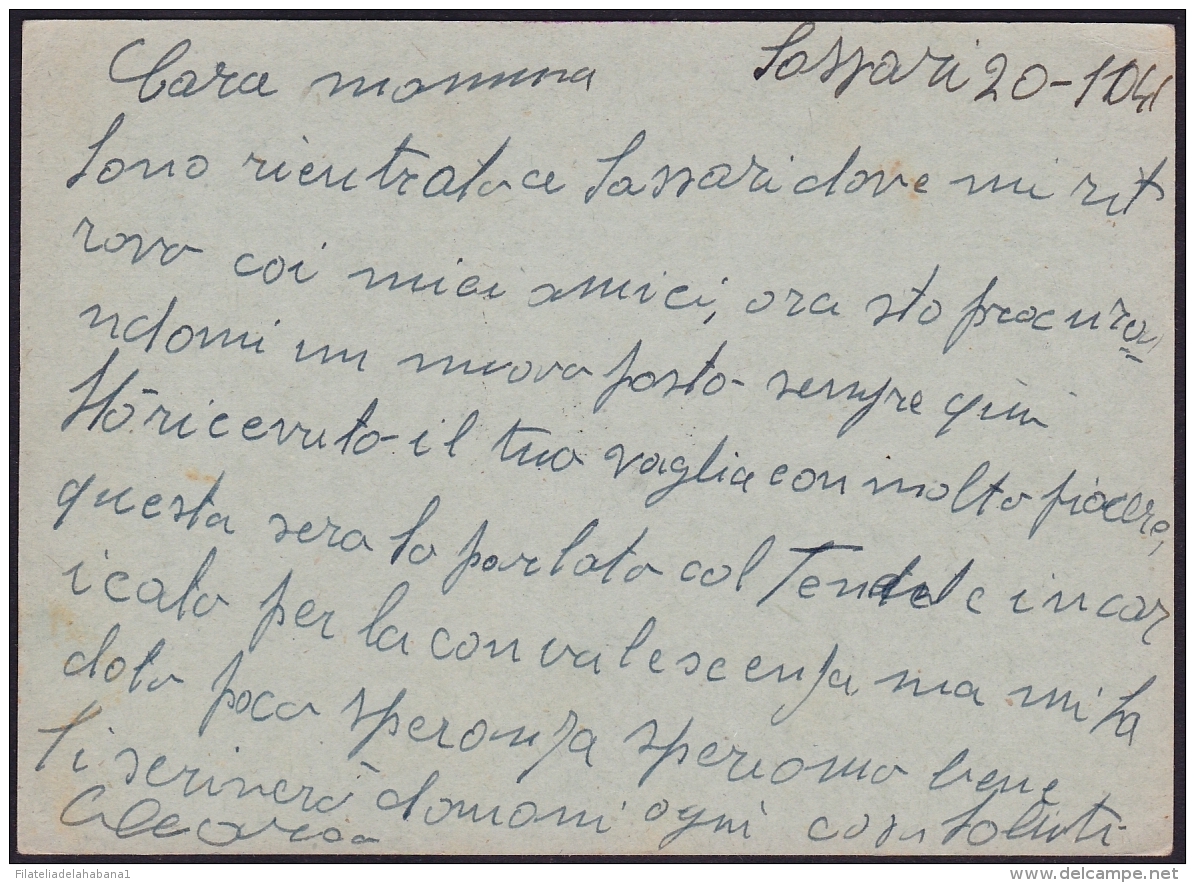 Sassari 20-1041
Cara mamma
Sono rientrato a Sassari dove mi rit
rovo coi miei amici, ora sto procura
ndomi un nuovo posto sempre quì
Hò ricevuto il tuo vaglia con molto piacere,
questa sera ho parlato col Tenente incar
icato per la convalescenza ma mi ha
dato poca speranza speriamo bene
Ti scriverò domani ogni cosa Saluti
Filateliadelahabana1
delcampe.net